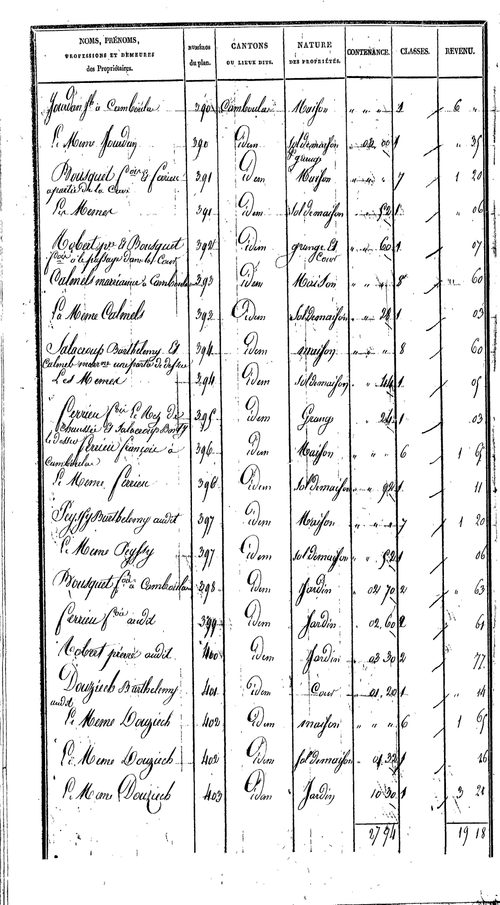 NOMS, PRÉNOMS, PROFESSIONS ET DEMEURES des Propriétaires. NUMÉROS du plan. CANTONS OU LIEUX DITS. NATURE DES PROPRIÉTÉS. CONTENANCE. CLASSES. REVENU.
Jourdan à Camboulan 390 Camboulan Maison " " " 2 6 "
Le Meme Jourdan 390 Idem Sol de maison " 02 00 1 " 35
grange
Bousquet fçois Et ferrieu 391 Idem Maison " " " 7 1 20
a partie de la Cour
Les Memes 391 Idem Sol de maison " " 52 1 " 06
Robert pre Et Bousquet 392 Idem grange Et " " 60 1 07
fçois à le passage dans la Cour Cour
Calmels marianne à Camboulan 393 Idem Maison " " " 8 " 60
La Meme Calmels 393 Idem Sol de maison " " 28 1 03
Salacroup Barthelemy Et 394 Idem maison " " " 8 60
Calmels une partie
Les Memes 394 Idem Sol de maison " " 44 1 05
ferrieu fçois le Rez de 395 Idem Grange " " 24 1 " 03
chaussée Et Salacroup
le dessus
ferrieu françois à 396 Idem Maison " " " 6 1 65
Camboulan
Le Meme ferrieu 396 Idem Sol de maison " " 92 1 11
Peyssy Barthelemy audit 397 Idem Maison " " " 7 1 20
Le Meme Peyssy 397 Idem Sol de maison " " 52 1 " 06
Bousquet fçois à Camboulan 398 Idem Jardin " 02 70 2 " 63
ferrieu fçois audit 399 Idem Jardin " 02 60 2 61
Robert pierre audit 400 Idem Jardin " 03 30 2 77
Douziech Barthelemy 401 Idem Cour " 01 20 1 " 14
audit
Le Meme Douziech 402 Idem maison " " " 6 1 65
Le Meme Douziech 402 Idem Sol de maison " 01 32 1 16
Le Meme Douziech 403 Idem Jardin " 10 30 1 3 21
27 94 19 18